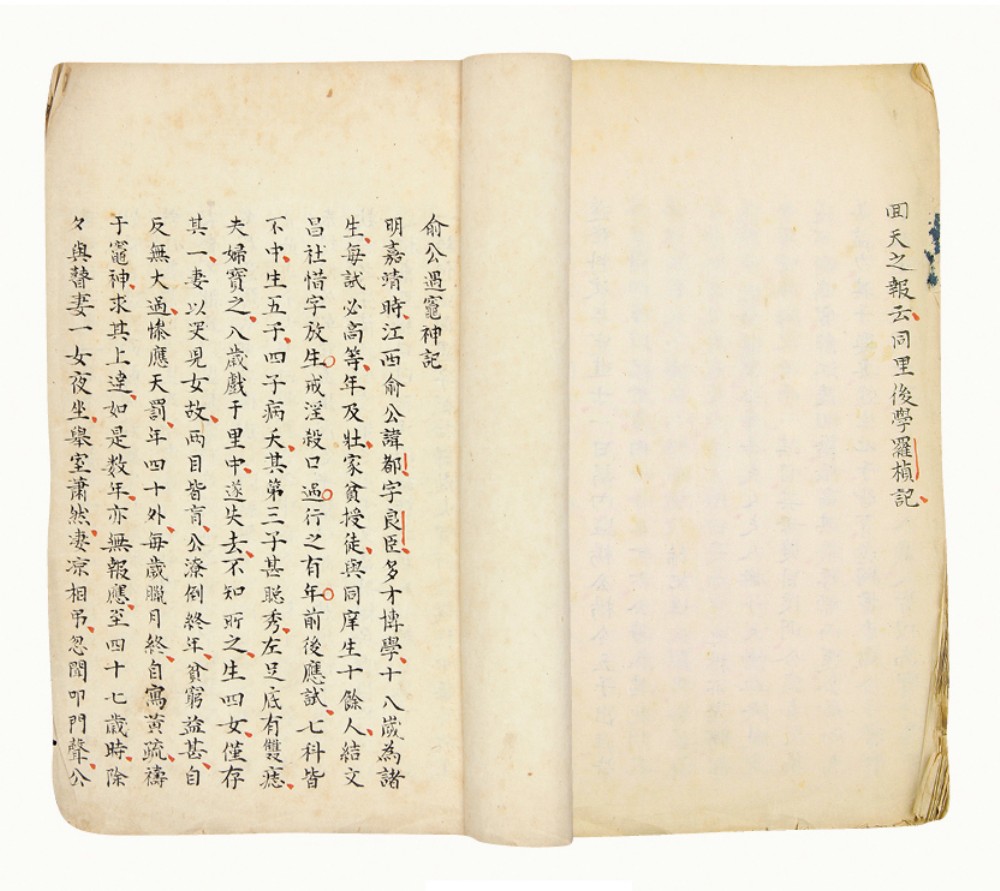 回天之報云同里後學羅楨記
俞公遇竈神記
明嘉靖時江西俞公諱都字良臣多才博學十八歲為諸
生每試必高等年及壯家貧授徒與同庠生十餘人結文
昌社惜字放生戒淫殺口過行之有年前後應試七科皆
不中生五子四子病夭其第三子甚聪秀左足底有雙痣
夫婦寶之八歲戲于里中遂失去不知所之生四女僅存
其一妻以哭兒女故兩目皆盲公潦倒終年貧窮益甚自
反無大過慘應天罰年四十外每歲臘月終自寫黃疏禱
于竈神求其上達如是数年亦無報應至四十七歲時除
夕與瞽妻一女夜坐舉室蕭然凄凉相弔忽聞叩門聲公